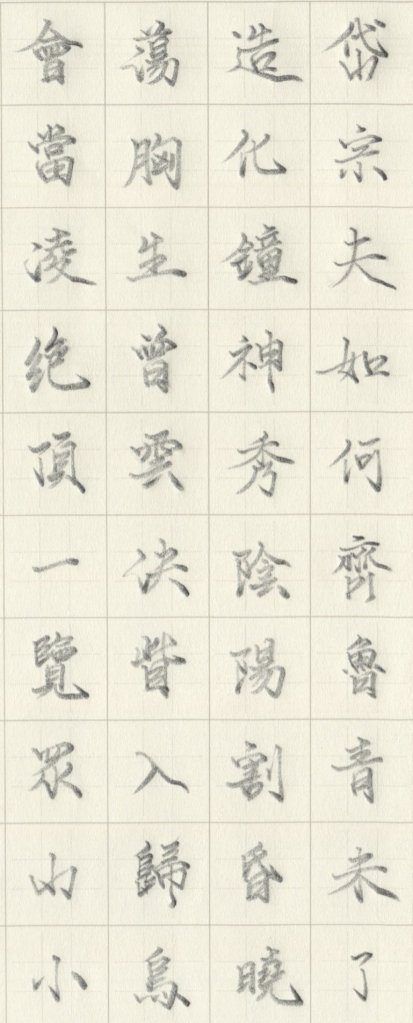 岱宗夫如何齊魯青未了
造化鐘神秀陰陽割昏曉
蕩胸生曾雲決眥入歸鳥
會當凌絕頂一覽眾山小